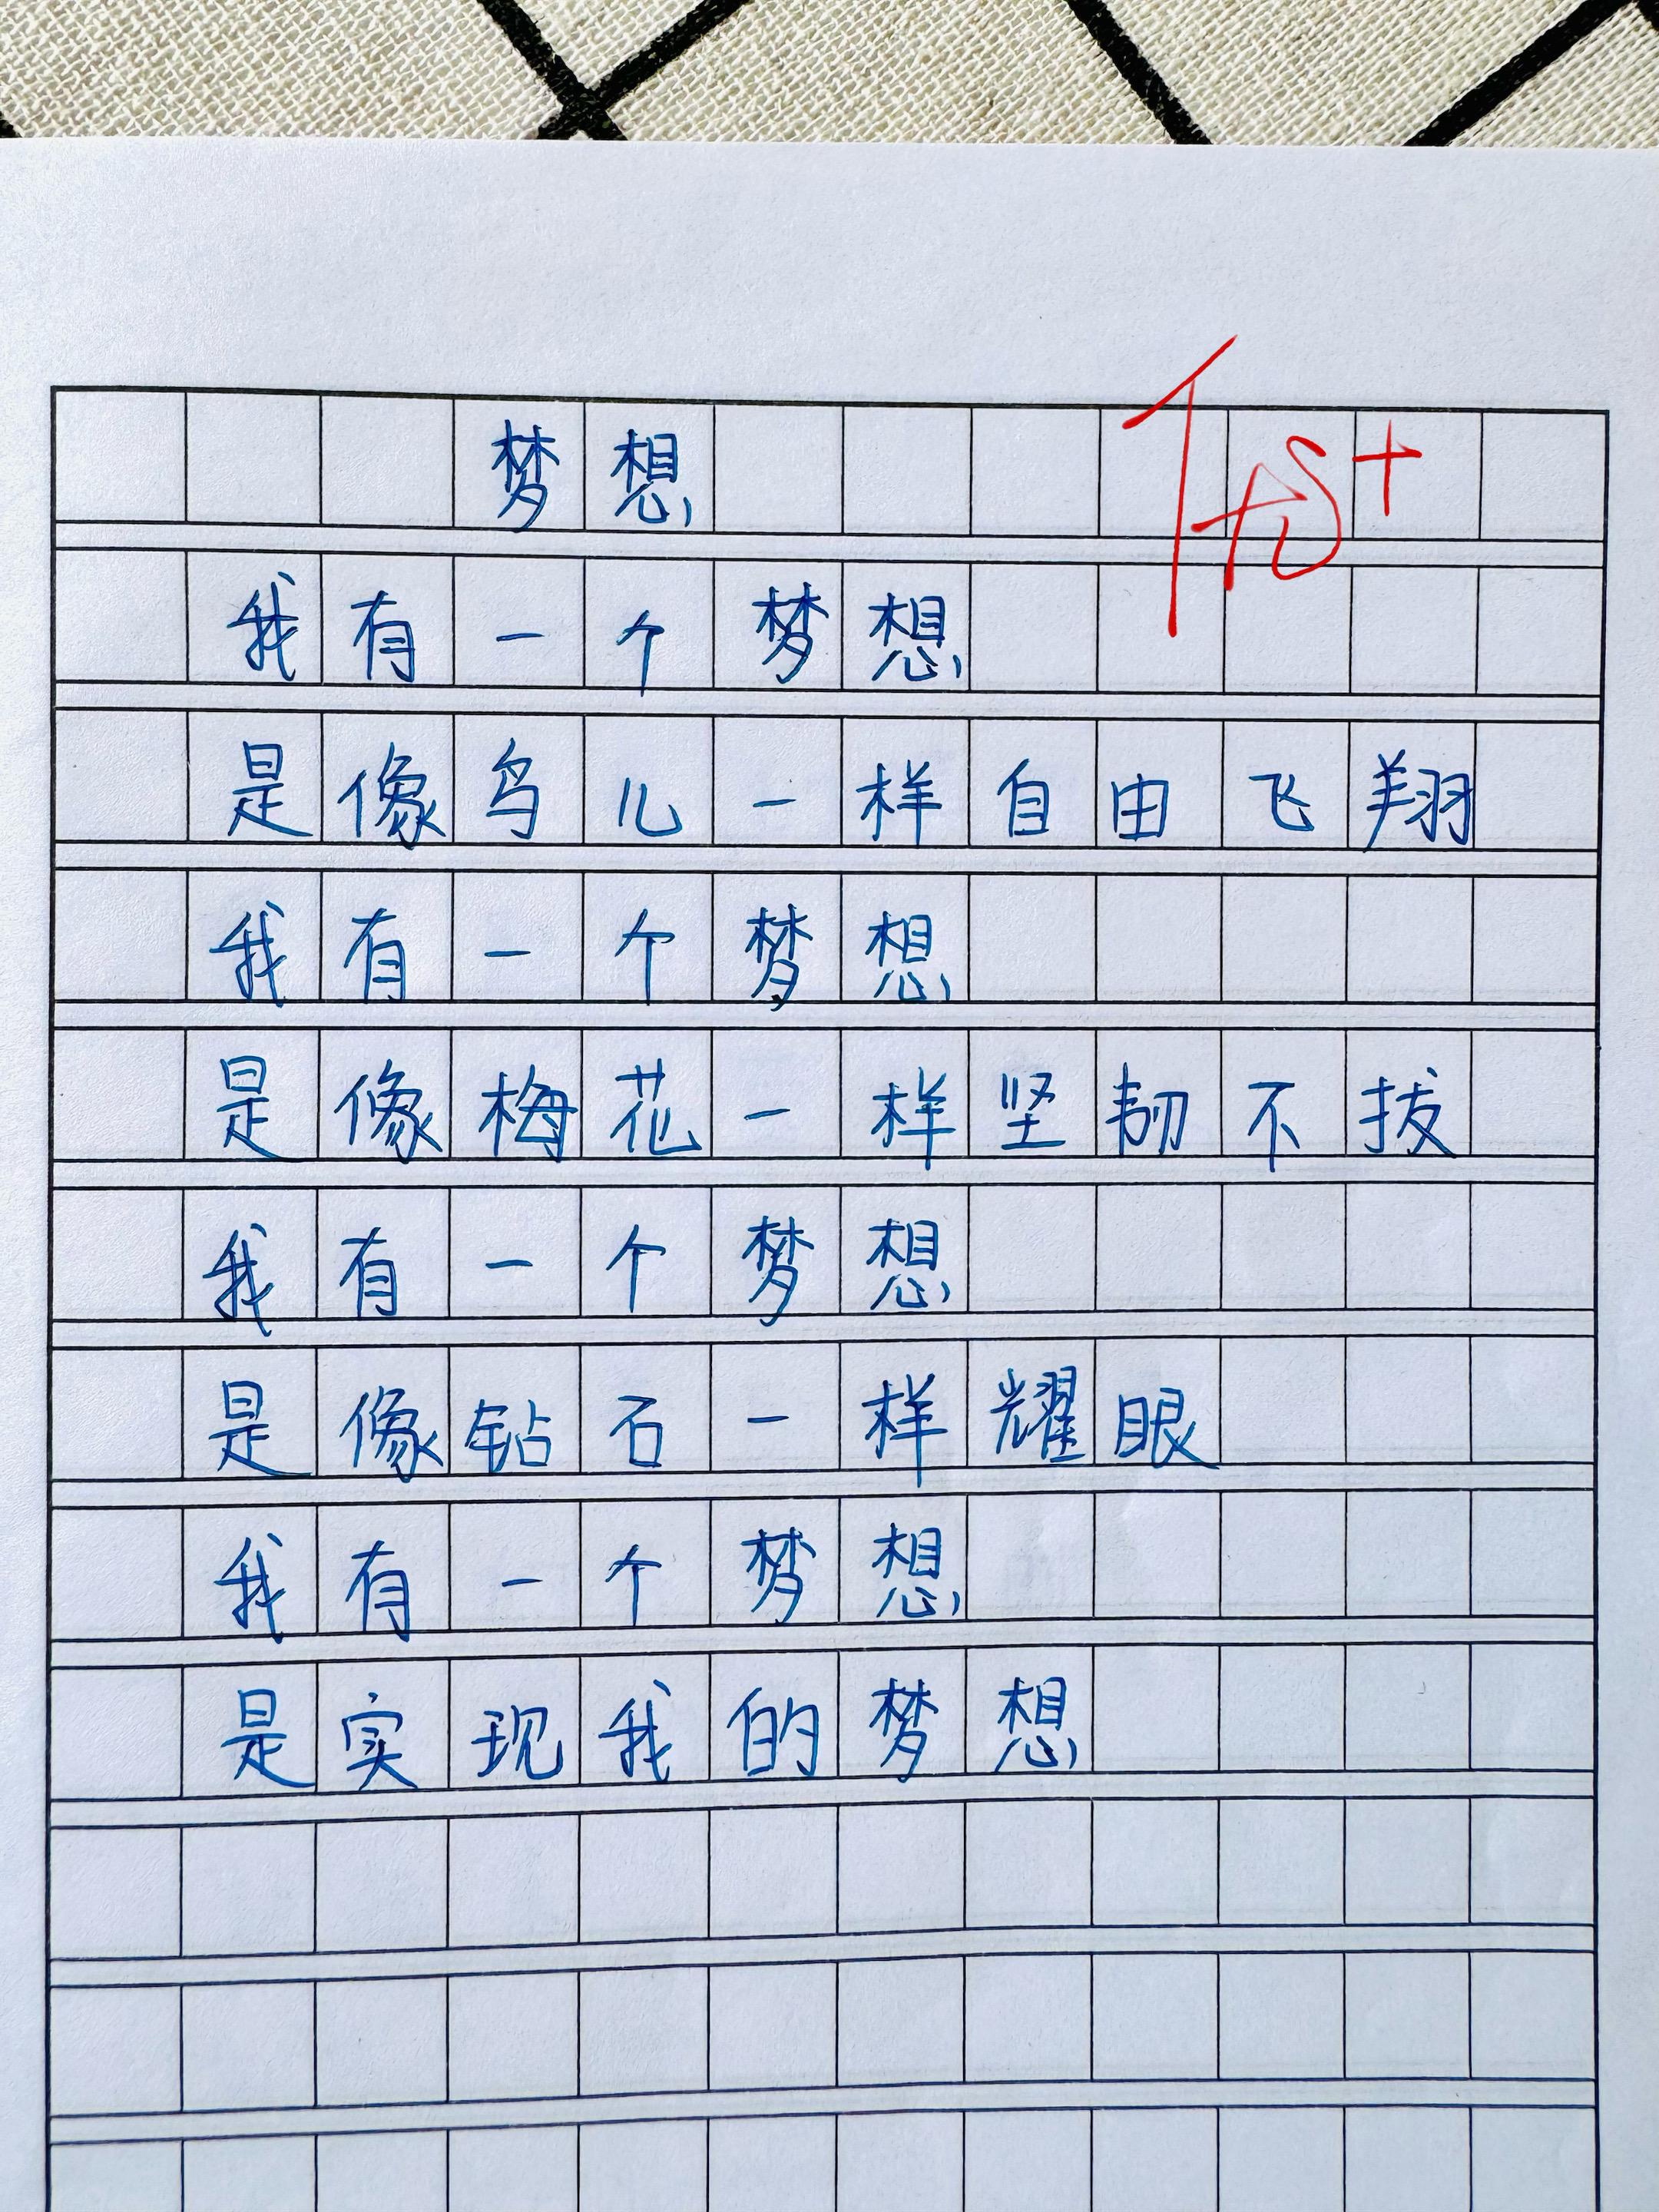 梦想
优+
我有一个梦想
是像鸟儿一样自由飞翔
我有一个梦想
是像梅花一样坚韧不拔
我有一个梦想
是像钻石一样耀眼
我有一个梦想
是实现我的梦想